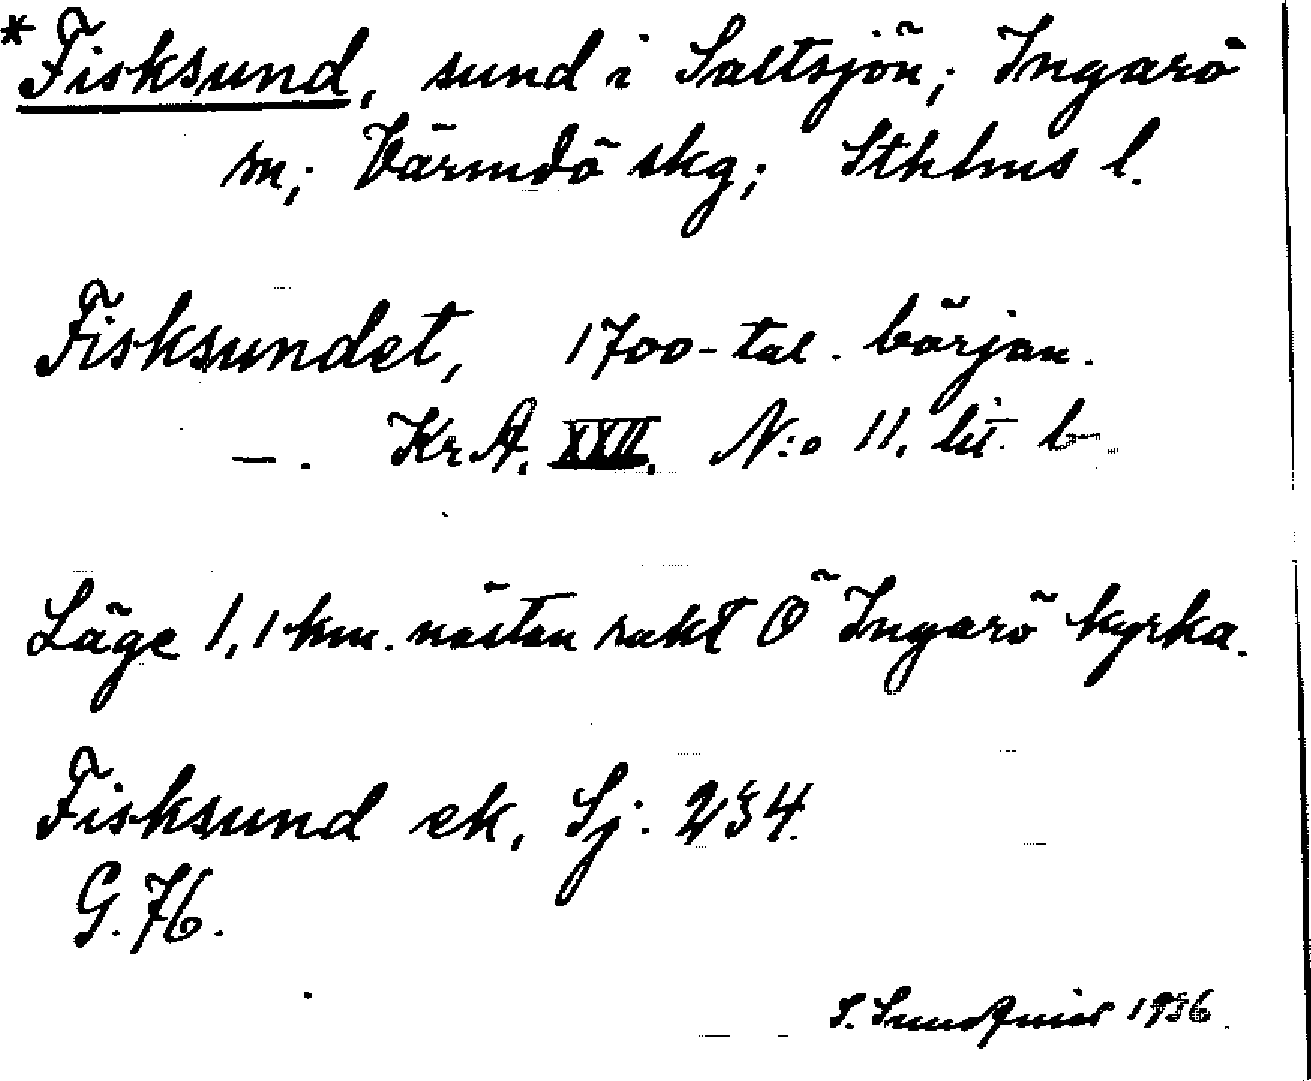 *Fisksund, sund i Saltsjön; Ingarö
sn; Värmdö skg; Sthlms l.
Fisksundet, 1700-tal. början.
—. Kr A. XXII. N:o 11. lit. b
Läge 1,1 km. nästan rakt Ö Ingarö kyrka.
Fisksund ek, Sj. 234.
G. 76.
S. Sundquist 1936.